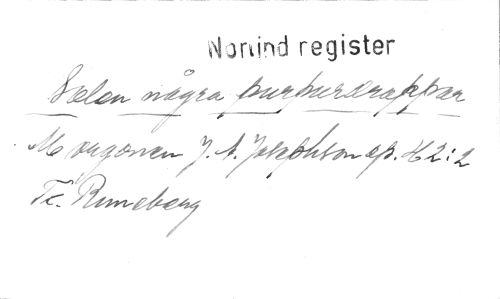 Norlind register
Solen några purpurdroppar
Morgonen J. A. Josephson op. 42:2
T.: Runeberg